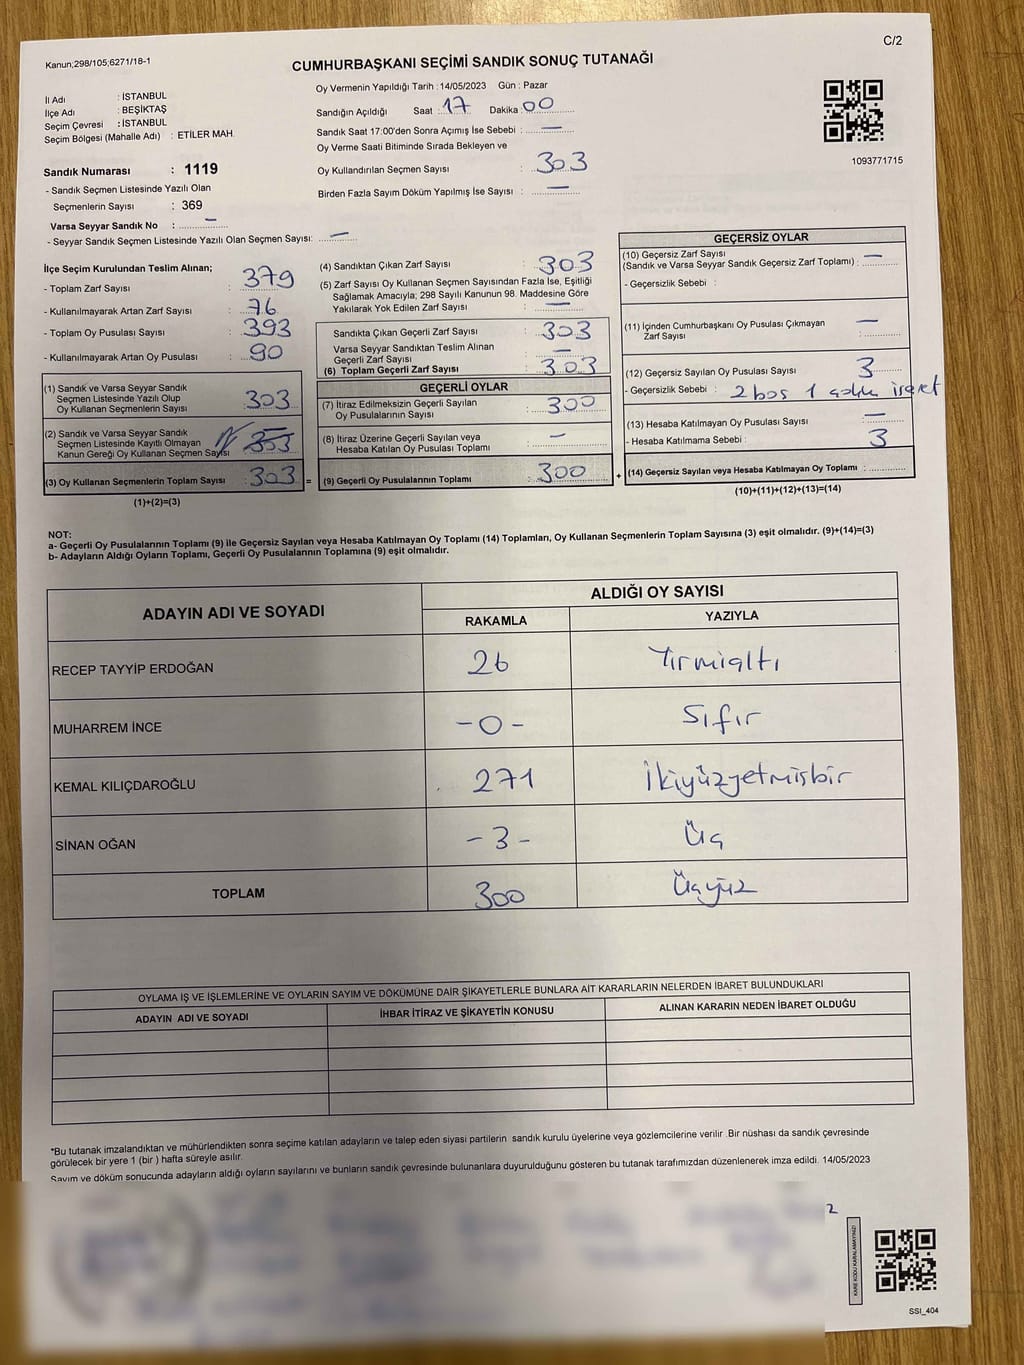 C/2
Kanun;298/105;6271/18-1
CUMHURBAŞKANI SEÇİMİ SANDIK SONUÇ TUTANAĞI
İl Adı : İSTANBUL
İlçe Adı : BEŞİKTAŞ
Seçim Çevresi : İSTANBUL
Seçim Bölgesi (Mahalle Adı) : ETİLER MAH.
Sandık Numarası : 1119
- Sandık Seçmen Listesinde Yazılı Olan
Seçmenlerin Sayısı : 369
Varsa Seyyar Sandık No : —
- Seyyar Sandık Seçmen Listesinde Yazılı Olan Seçmen Sayısı: —
Oy Vermenin Yapıldığı Tarih : 14/05/2023 Gün : Pazar
Sandığın Açıldığı Saat : 17 Dakika : 00
Sandık Saat 17:00'den Sonra Açımış İse Sebebi : —
Oy Verme Saati Bitiminde Sırada Bekleyen ve
Oy Kullandırılan Seçmen Sayısı : 303
Birden Fazla Sayım Döküm Yapılmış İse Sayısı : —
1093771715
İlçe Seçim Kurulundan Teslim Alınan;
- Toplam Zarf Sayısı : 379
- Kullanılmayarak Artan Zarf Sayısı : 76
- Toplam Oy Pusulası Sayısı : 393
- Kullanılmayarak Artan Oy Pusulası : 90
(1) Sandık ve Varsa Seyyar Sandık
Seçmen Listesinde Yazılı Olup
Oy Kullanan Seçmenlerin Sayısı : 303
(2) Sandık ve Varsa Seyyar Sandık
Seçmen Listesinde Kayıtlı Olmayan
Kanun Gereği Oy Kullanan Seçmen Sayısı
(3) Oy Kullanan Seçmenlerin Toplam Sayısı : 303 =
(1)+(2)=(3)
(4) Sandıktan Çıkan Zarf Sayısı : 303
(5) Zarf Sayısı Oy Kullanan Seçmen Sayısından Fazla İse, Eşitliği
Sağlamak Amacıyla; 298 Sayılı Kanunun 98. Maddesine Göre
Yakılarak Yok Edilen Zarf Sayısı : —
Sandıkta Çıkan Geçerli Zarf Sayısı : 303
Varsa Seyyar Sandıktan Teslim Alınan
Geçerli Zarf Sayısı : —
(6) Toplam Geçerli Zarf Sayısı : 303
GEÇERLİ OYLAR
(7) İtiraz Edilmeksizin Geçerli Sayılan
Oy Pusulalarının Sayısı : 300
(8) İtiraz Üzerine Geçerli Sayılan veya
Hesaba Katılan Oy Pusulası Toplamı : —
(9) Geçerli Oy Pusulalarının Toplamı : 300 +
GEÇERSİZ OYLAR
(10) Geçersiz Zarf Sayısı
(Sandık ve Varsa Seyyar Sandık Geçersiz Zarf Toplamı) : —
- Geçersizlik Sebebi :
(11) İçinden Cumhurbaşkanı Oy Pusulası Çıkmayan
Zarf Sayısı : —
(12) Geçersiz Sayılan Oy Pusulası Sayısı : 3
- Geçersizlik Sebebi : 2 boş 1 işaret
(13) Hesaba Katılmayan Oy Pusulası Sayısı : —
- Hesaba Katılmama Sebebi :
(14) Geçersiz Sayılan veya Hesaba Katılmayan Oy Toplamı : 3
(10)+(11)+(12)+(13)=(14)
NOT:
a- Geçerli Oy Pusulalarının Toplamı (9) ile Geçersiz Sayılan veya Hesaba Katılmayan Oy Toplamı (14) Toplamları, Oy Kullanan Seçmenlerin Toplam Sayısına (3) eşit olmalıdır. (9)+(14)=(3)
b- Adayların Aldığı Oyların Toplamı, Geçerli Oy Pusulalarının Toplamına (9) eşit olmalıdır.
ADAYIN ADI VE SOYADI
ALDIĞI OY SAYISI
RAKAMLA YAZIYLA
RECEP TAYYİP ERDOĞAN 26 Yirmialtı
MUHARREM İNCE -0- Sıfır
KEMAL KILIÇDAROĞLU 271 İkiyüzyetmişbir
SİNAN OĞAN -3- Üç
TOPLAM 300 Üçyüz
OYLAMA İŞ VE İŞLEMLERİNE VE OYLARIN SAYIM VE DÖKÜMÜNE DAİR ŞİKAYETLERLE BUNLARA AİT KARARLARIN NELERDEN İBARET BULUNDUKLARI
ADAYIN ADI VE SOYADI İHBAR İTİRAZ VE ŞİKAYETİN KONUSU ALINAN KARARIN NEDEN İBARET OLDUĞU
*Bu tutanak imzalandıktan ve mühürlendikten sonra seçime katılan adayların ve talep eden siyasi partilerin sandık kurulu üyelerine veya gözlemcilerine verilir .Bir nüshası da sandık çevresinde
görülecek bir yere 1 (bir ) hafta süreyle asılır.
Sayım ve döküm sonucunda adayların aldığı oyların sayılarını ve bunların sandık çevresinde bulunanlara duyurulduğunu gösteren bu tutanak tarafımızdan düzenlenerek imza edildi. 14/05/2023
KARE KODU KARALAMAYINIZ!
SSI_404